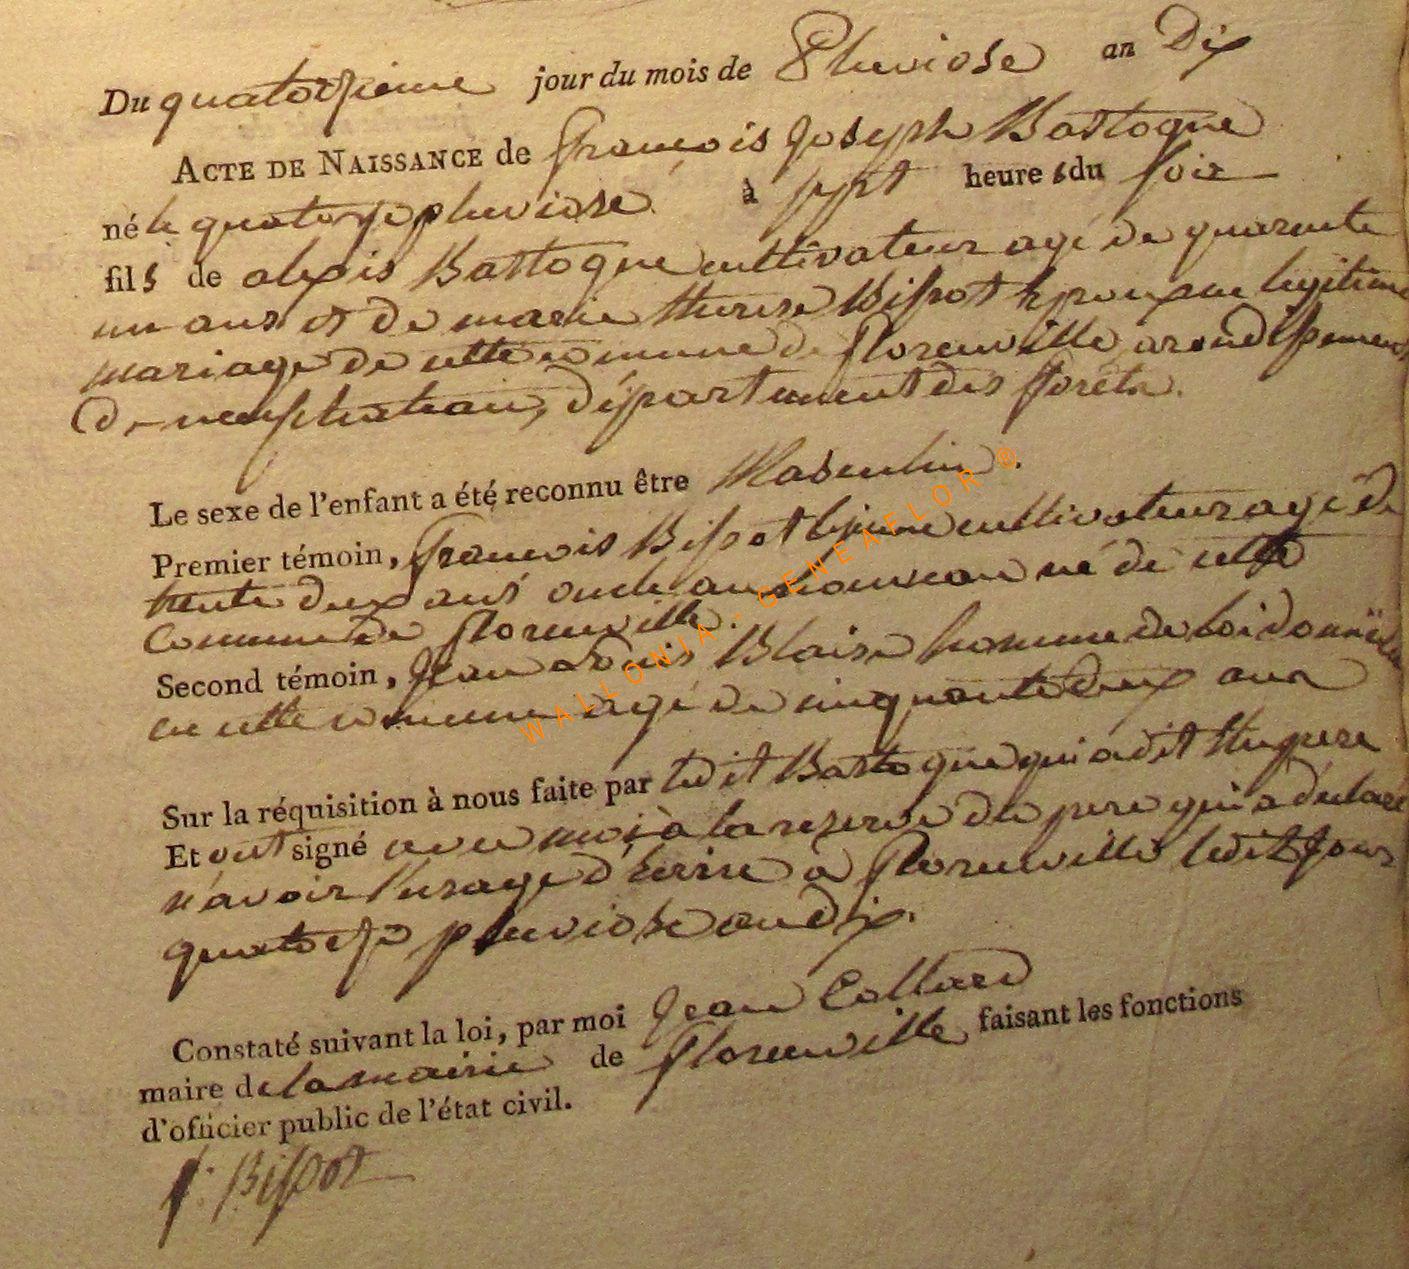 Du quatorzieme jour du mois de Pluviose an Dix
ACTE DE NAISSANCE de francois Joseph Bastogne
né le quatorze pluviose à sept heures du soir
fils de alexis Bastogne cultivateur agé de quarente
un ans et de marie therese Bissot Epoux en legitime
mariage de cette commune de florenville arondissement
de neufchateau, département des forêts.
Le sexe de l'enfant a été reconnu être Masculin.
Premier témoin, francois Bissot le jeune cultivateur agé de
trente deux ans oncle au nouveau né de cette
Commune de florenville.
Second témoin, Jean Louis Blaise homme de loi domicilié
en cette commune agé de cinquante deux ans
Sur la réquisition à nous faite par ledit Bastogne qui a dit etre pere
Et ont signé avec moi à la reserve du pere qui a déclaré
n'avoir l'usage d'Ecrire a florenville ledit Jour
quatorze pluviose an dix.
Constaté suivant la loi, par moi Jean Collard
maire de la mairie de florenville faisant les fonctions
d'officier public de l'état civil.
f: Bissot
WALLONIA - GENEAFLOR ®